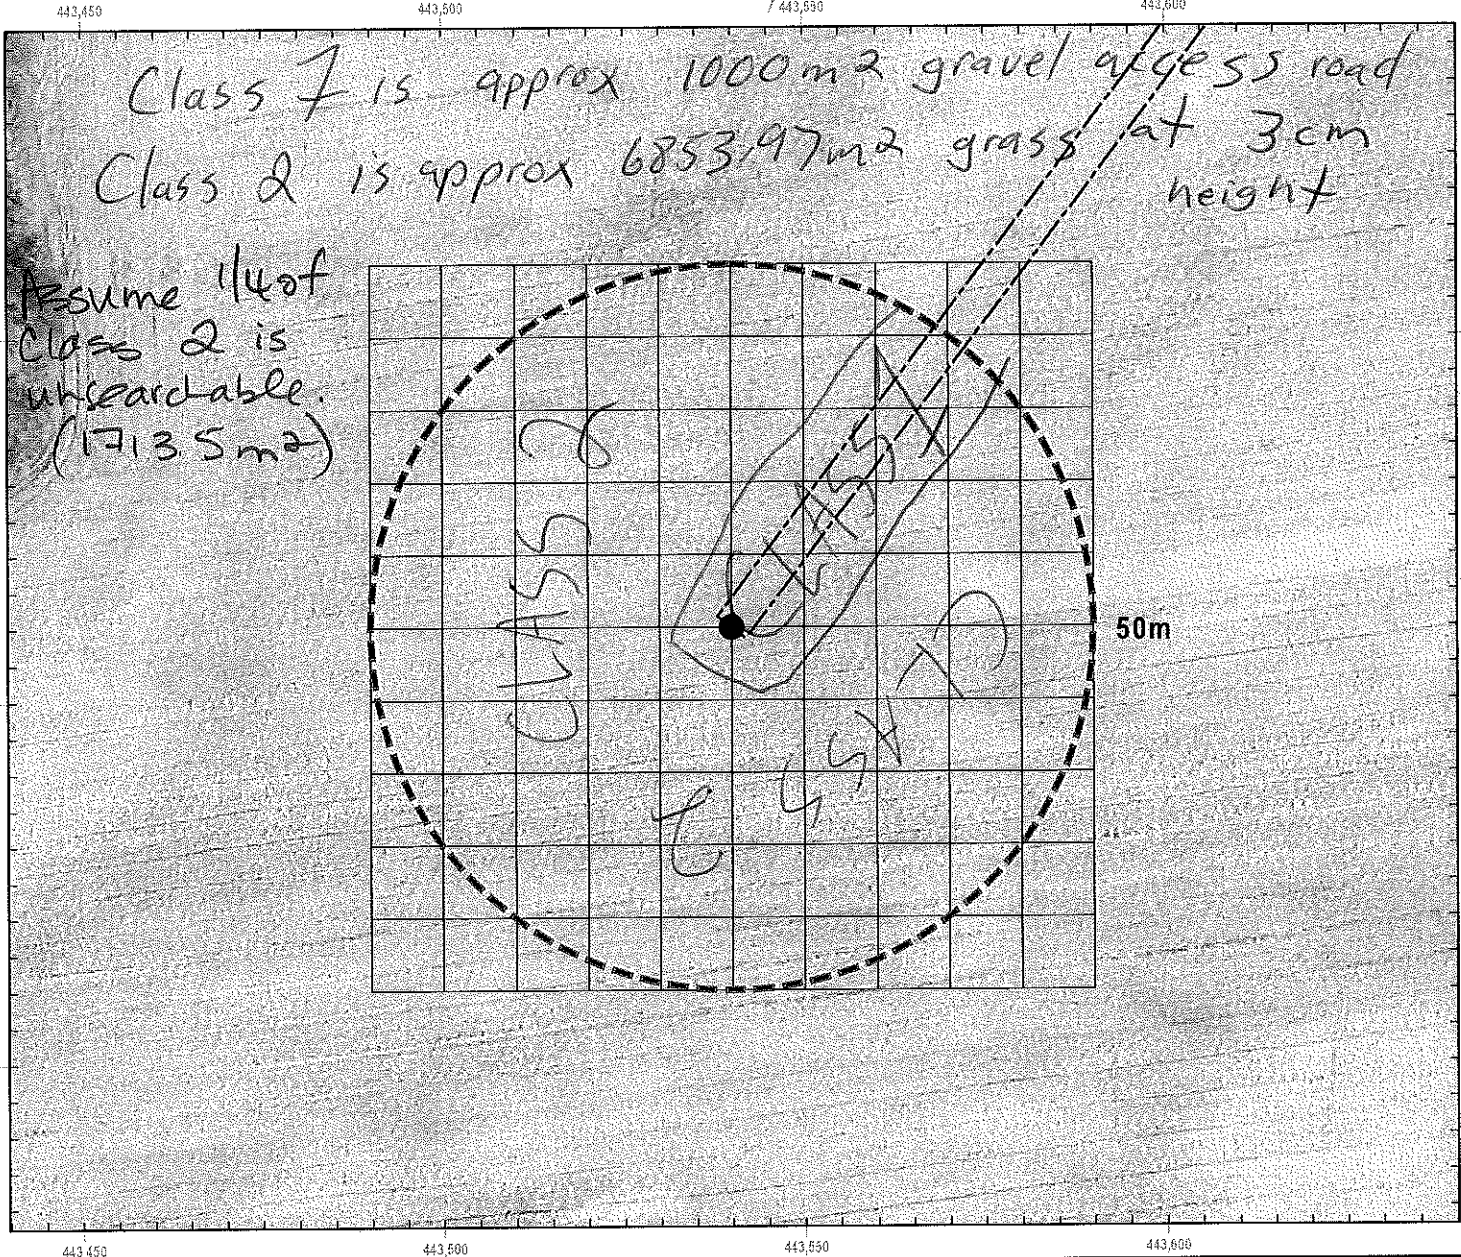 443,450 443,500 443,550 443,600
Class 1 is approx 1000m2 gravel access road
Class 2 is approx 6853.97m2 grass at 3cm
height
Assume 1/4 of
Class 2 is
unsearchable.
(1713.5m2)
CLASS 2
CLASS 1
CLASS 2
50m
443,450 443,500 443,550 443,600